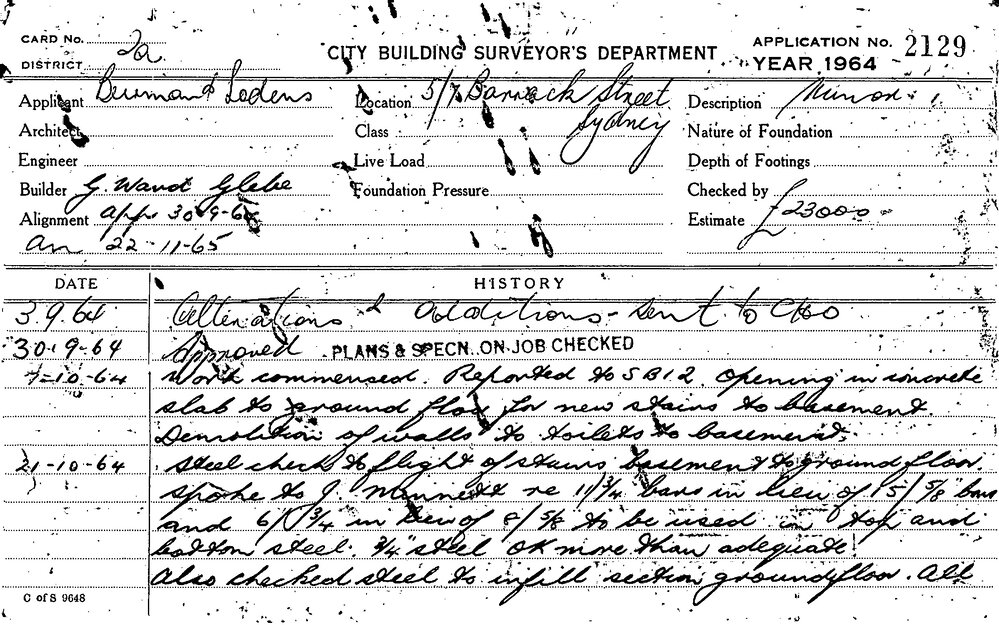 CARD No. 2a
DISTRICT
CITY BUILDING SURVEYOR'S DEPARTMENT
APPLICATION No. 2129
YEAR 1964
Applicant
Location 5/7 Barrack Street
Sydney
Description Minor
Architect
Class
Nature of Foundation
Engineer
Live Load
Depth of Footings
Builder G. Ward Glebe
Foundation Pressure
Checked by
Alignment app. 30-9-64
Estimate £23000
an 22-11-65
DATE HISTORY
3.9.64 Alterations & additions - sent to
30-9-64 Approved PLANS & SPECN. ON JOB CHECKED
7-10-64 Work commensed. Reported to SB12. Opening in concrete
slab to ground floor for new stairs to basement.
Demolition of walls to toilets to basement.
21-10-64 Steel check to flight of stairs basement to ground floor.
spoke to J. re 11/ 3/4" bars in lieu of 15/ 5/8" bars
and 6/ 3/4 in lieu of 8/ 5/8 to be used in top and
bottom steel. 3/4" steel OK more than adequate
Also checked steel to infill section ground floor. All
C of S 9648